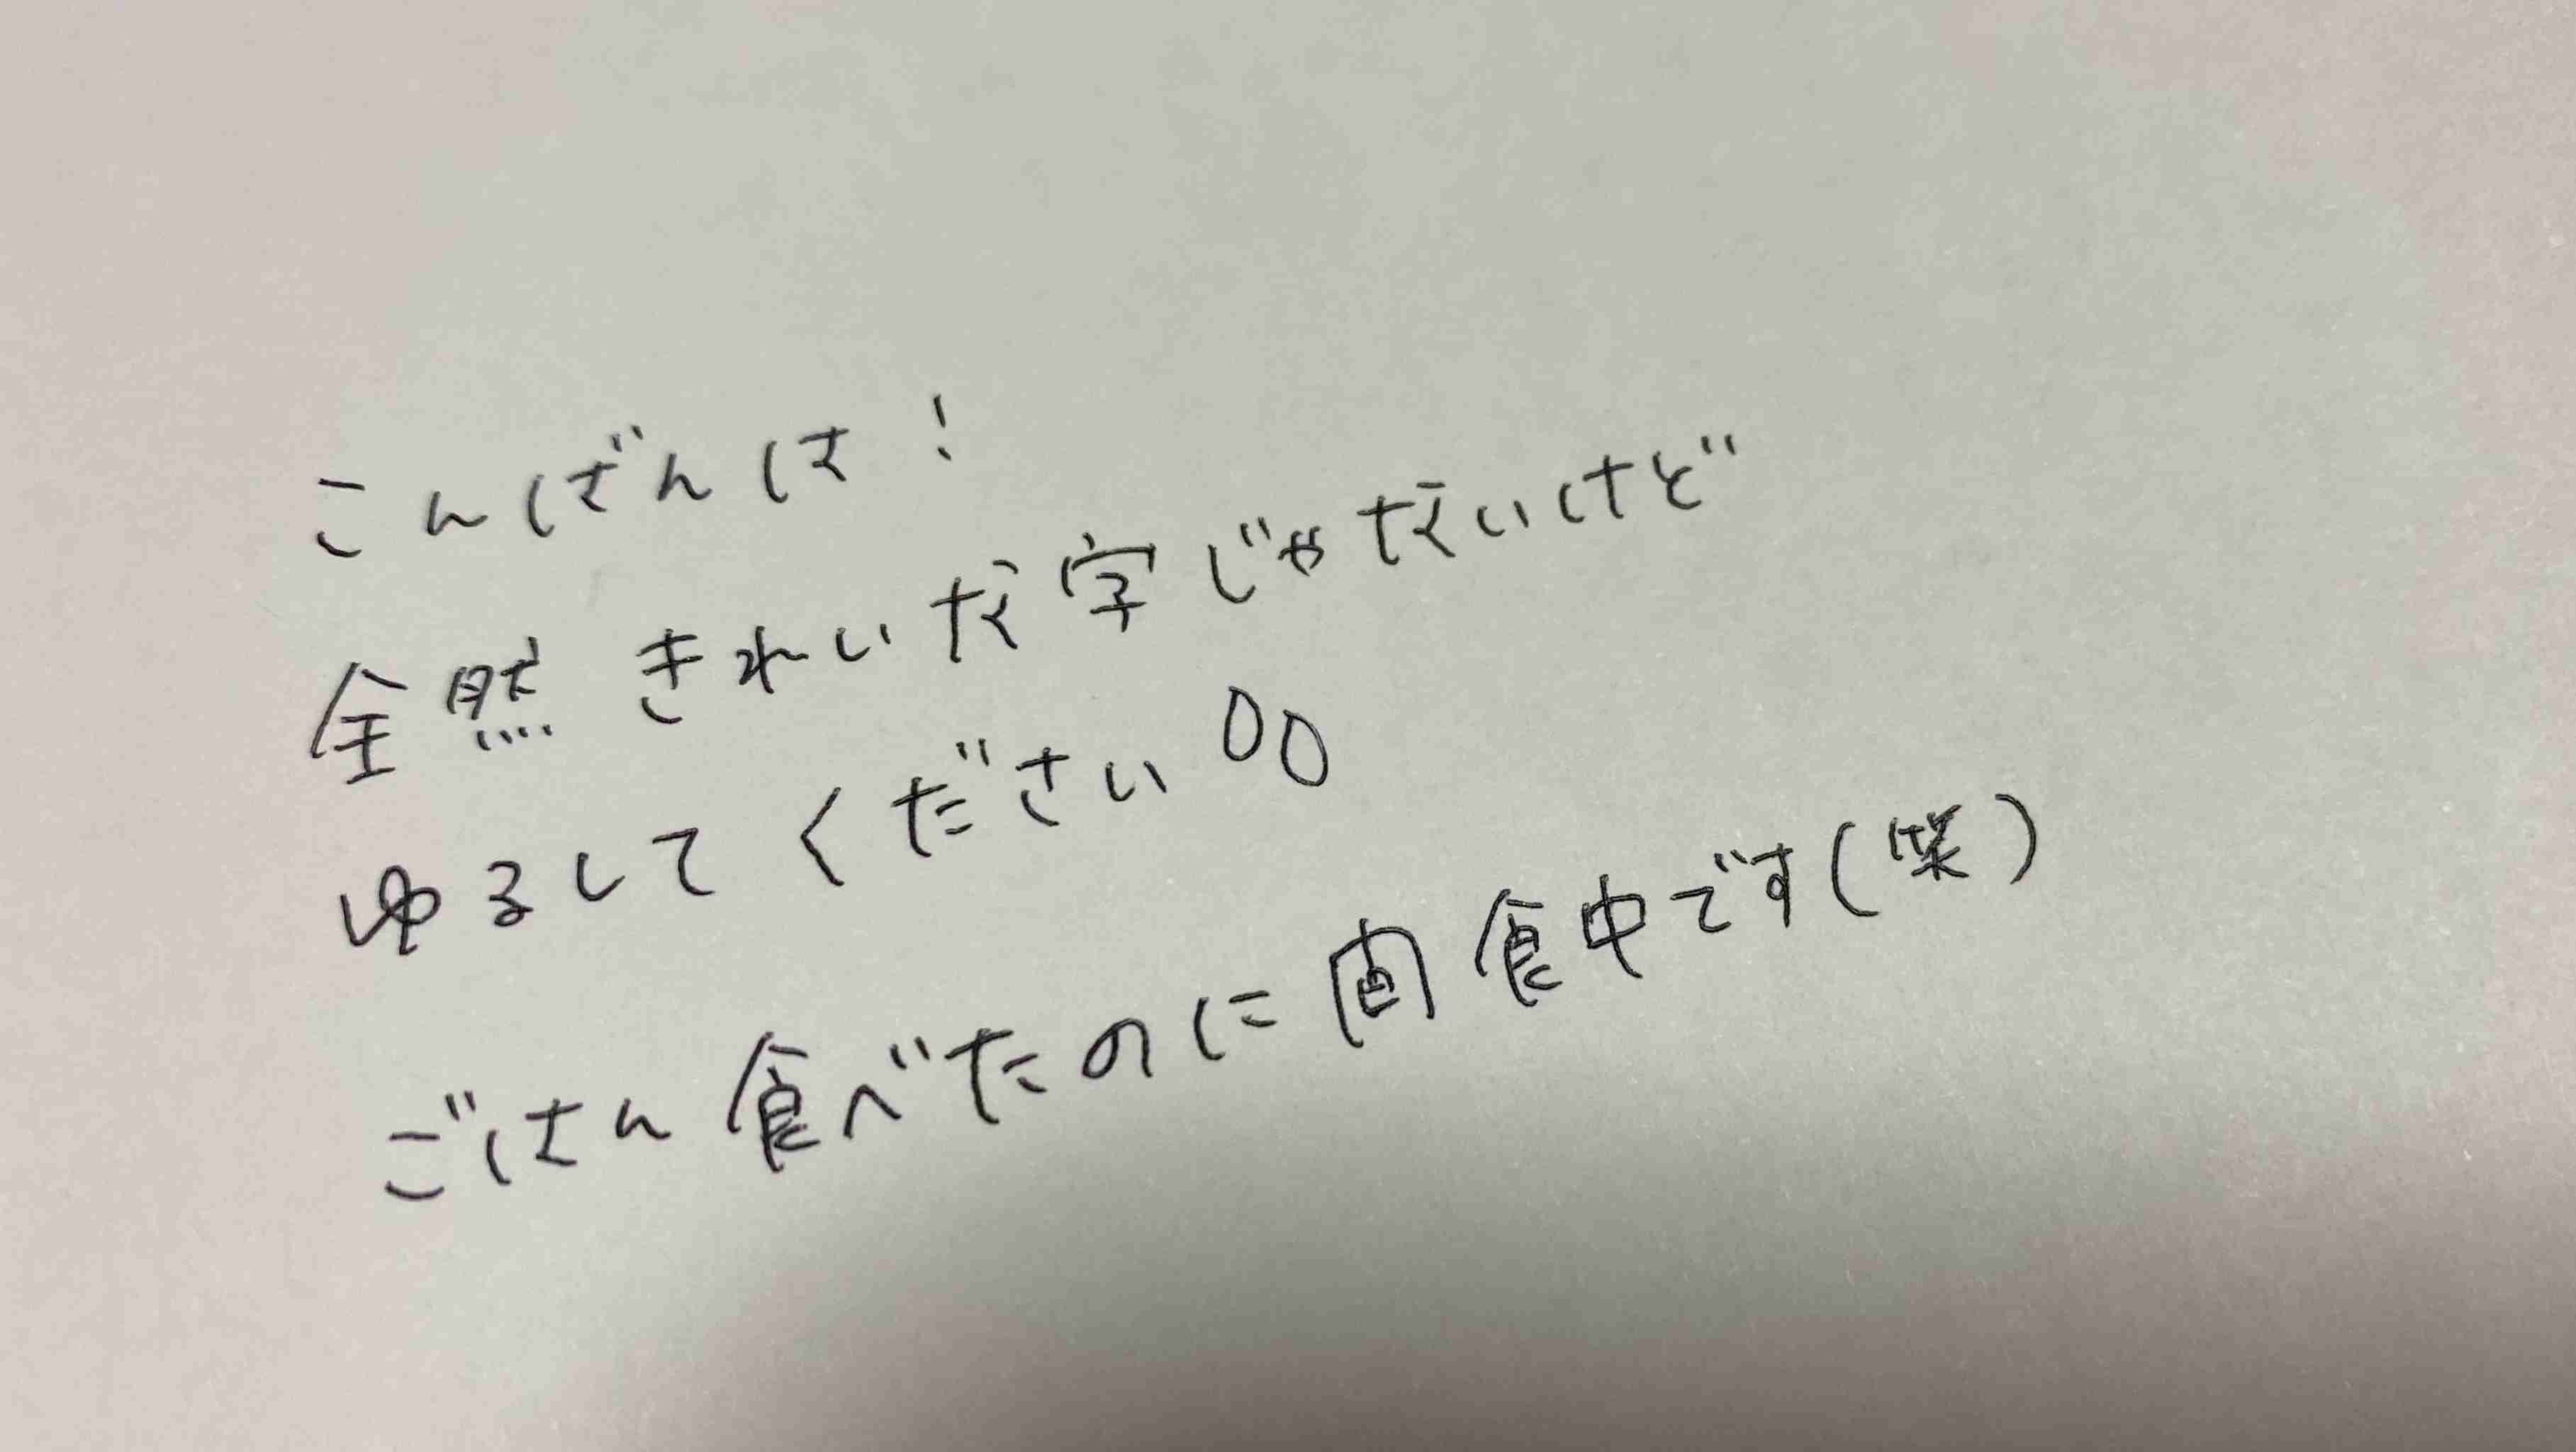 こんばんは!
全然きれいな字じゃないけど
ゆるしてください00
ごはん食べたのに間食中です(笑)